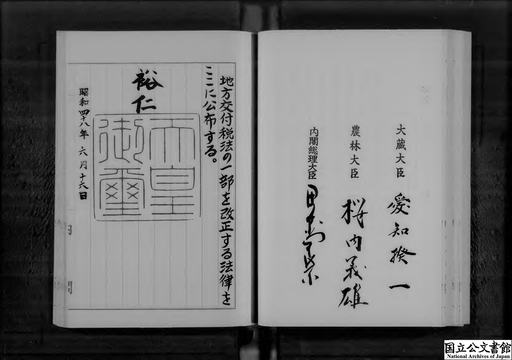 大蔵大臣 愛知揆一
農林大臣 桜内義雄
内閣総理大臣 田中角榮
地方交付税法の一部を改正する法律を
ここに公布する。
裕仁
天皇御璽
昭和四十八年六月十六日
国立公文書館
National Archives of Japan